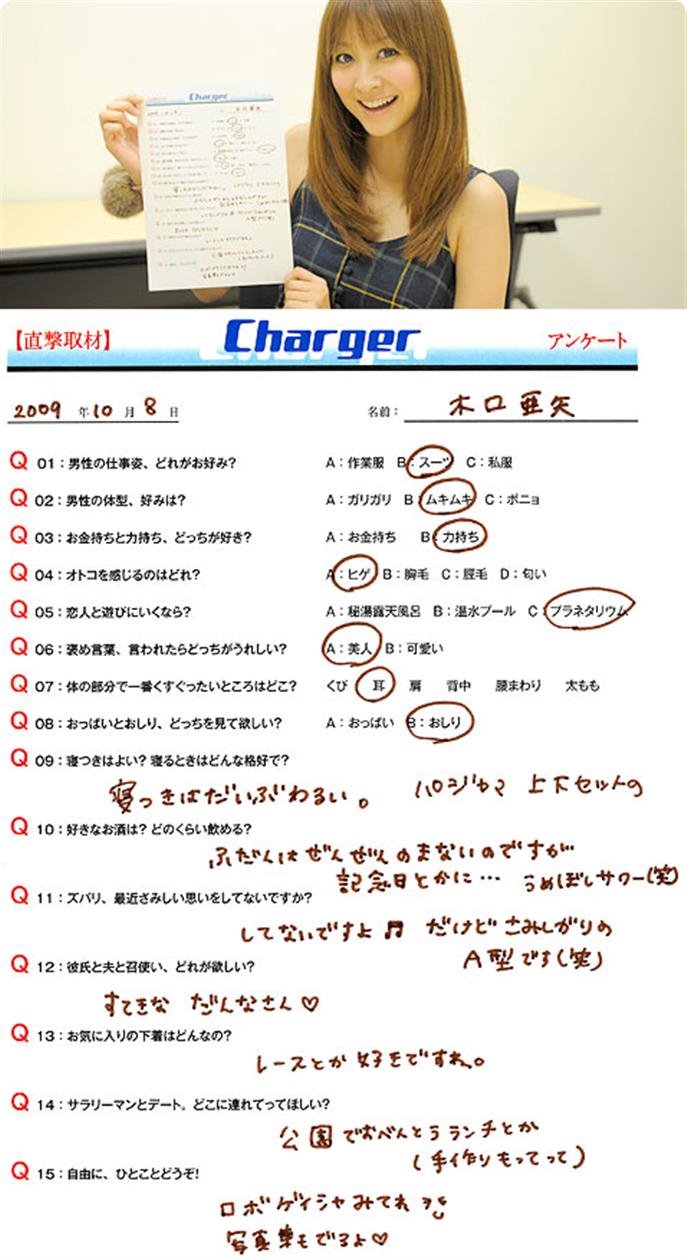 Charger
【直撃取材】 Charger アンケート
2009 年 10 月 8 日 名前： 木口亜矢
Q 01：男性の仕事姿、どれがお好み？ A：作業服 B：スーツ C：私服
Q 02：男性の体型、好みは？ A：ガリガリ B：ムキムキ C：ポニョ
Q 03：お金持ちと力持ち、どっちが好き？ A：お金持ち B：力持ち
Q 04：オトコを感じるのはどれ？ A：ヒゲ B：胸毛 C：脛毛 D：匂い
Q 05：恋人と遊びにいくなら？ A：秘湯露天風呂 B：温水プール C：プラネタリウム
Q 06：褒め言葉、言われたらどっちがうれしい？ A：美人 B：可愛い
Q 07：体の部分で一番くすぐったいところはどこ？ くび 耳 肩 背中 腰まわり 太もも
Q 08：おっぱいとおしり、どっちを見て欲しい？ A：おっぱい B：おしり
Q 09：寝つきはよい？ 寝るときはどんな格好で？
寝つきはだいぶわるい。 パジャマ 上下セットの
Q 10：好きなお酒は？ どのくらい飲める？
ふだんはぜんぜんのまないのですが
記念日とかに… うめぼしサワー(笑)
Q 11：ズバリ、最近さみしい思いをしてないですか？
してないですよ♬ だけどさみしがりの
A型です(笑)
Q 12：彼氏と夫と召使い、どれが欲しい？
すてきな だんなさん♡
Q 13：お気に入りの下着はどんなの？
レースとか好きですね。
Q 14：サラリーマンとデート。どこに連れてってほしい？
公園でおべんとうランチとか
(手作りもってって)
Q 15：自由に、ひとことどうぞ！
ロボゲイシャみてね
写真集もでるよ♡